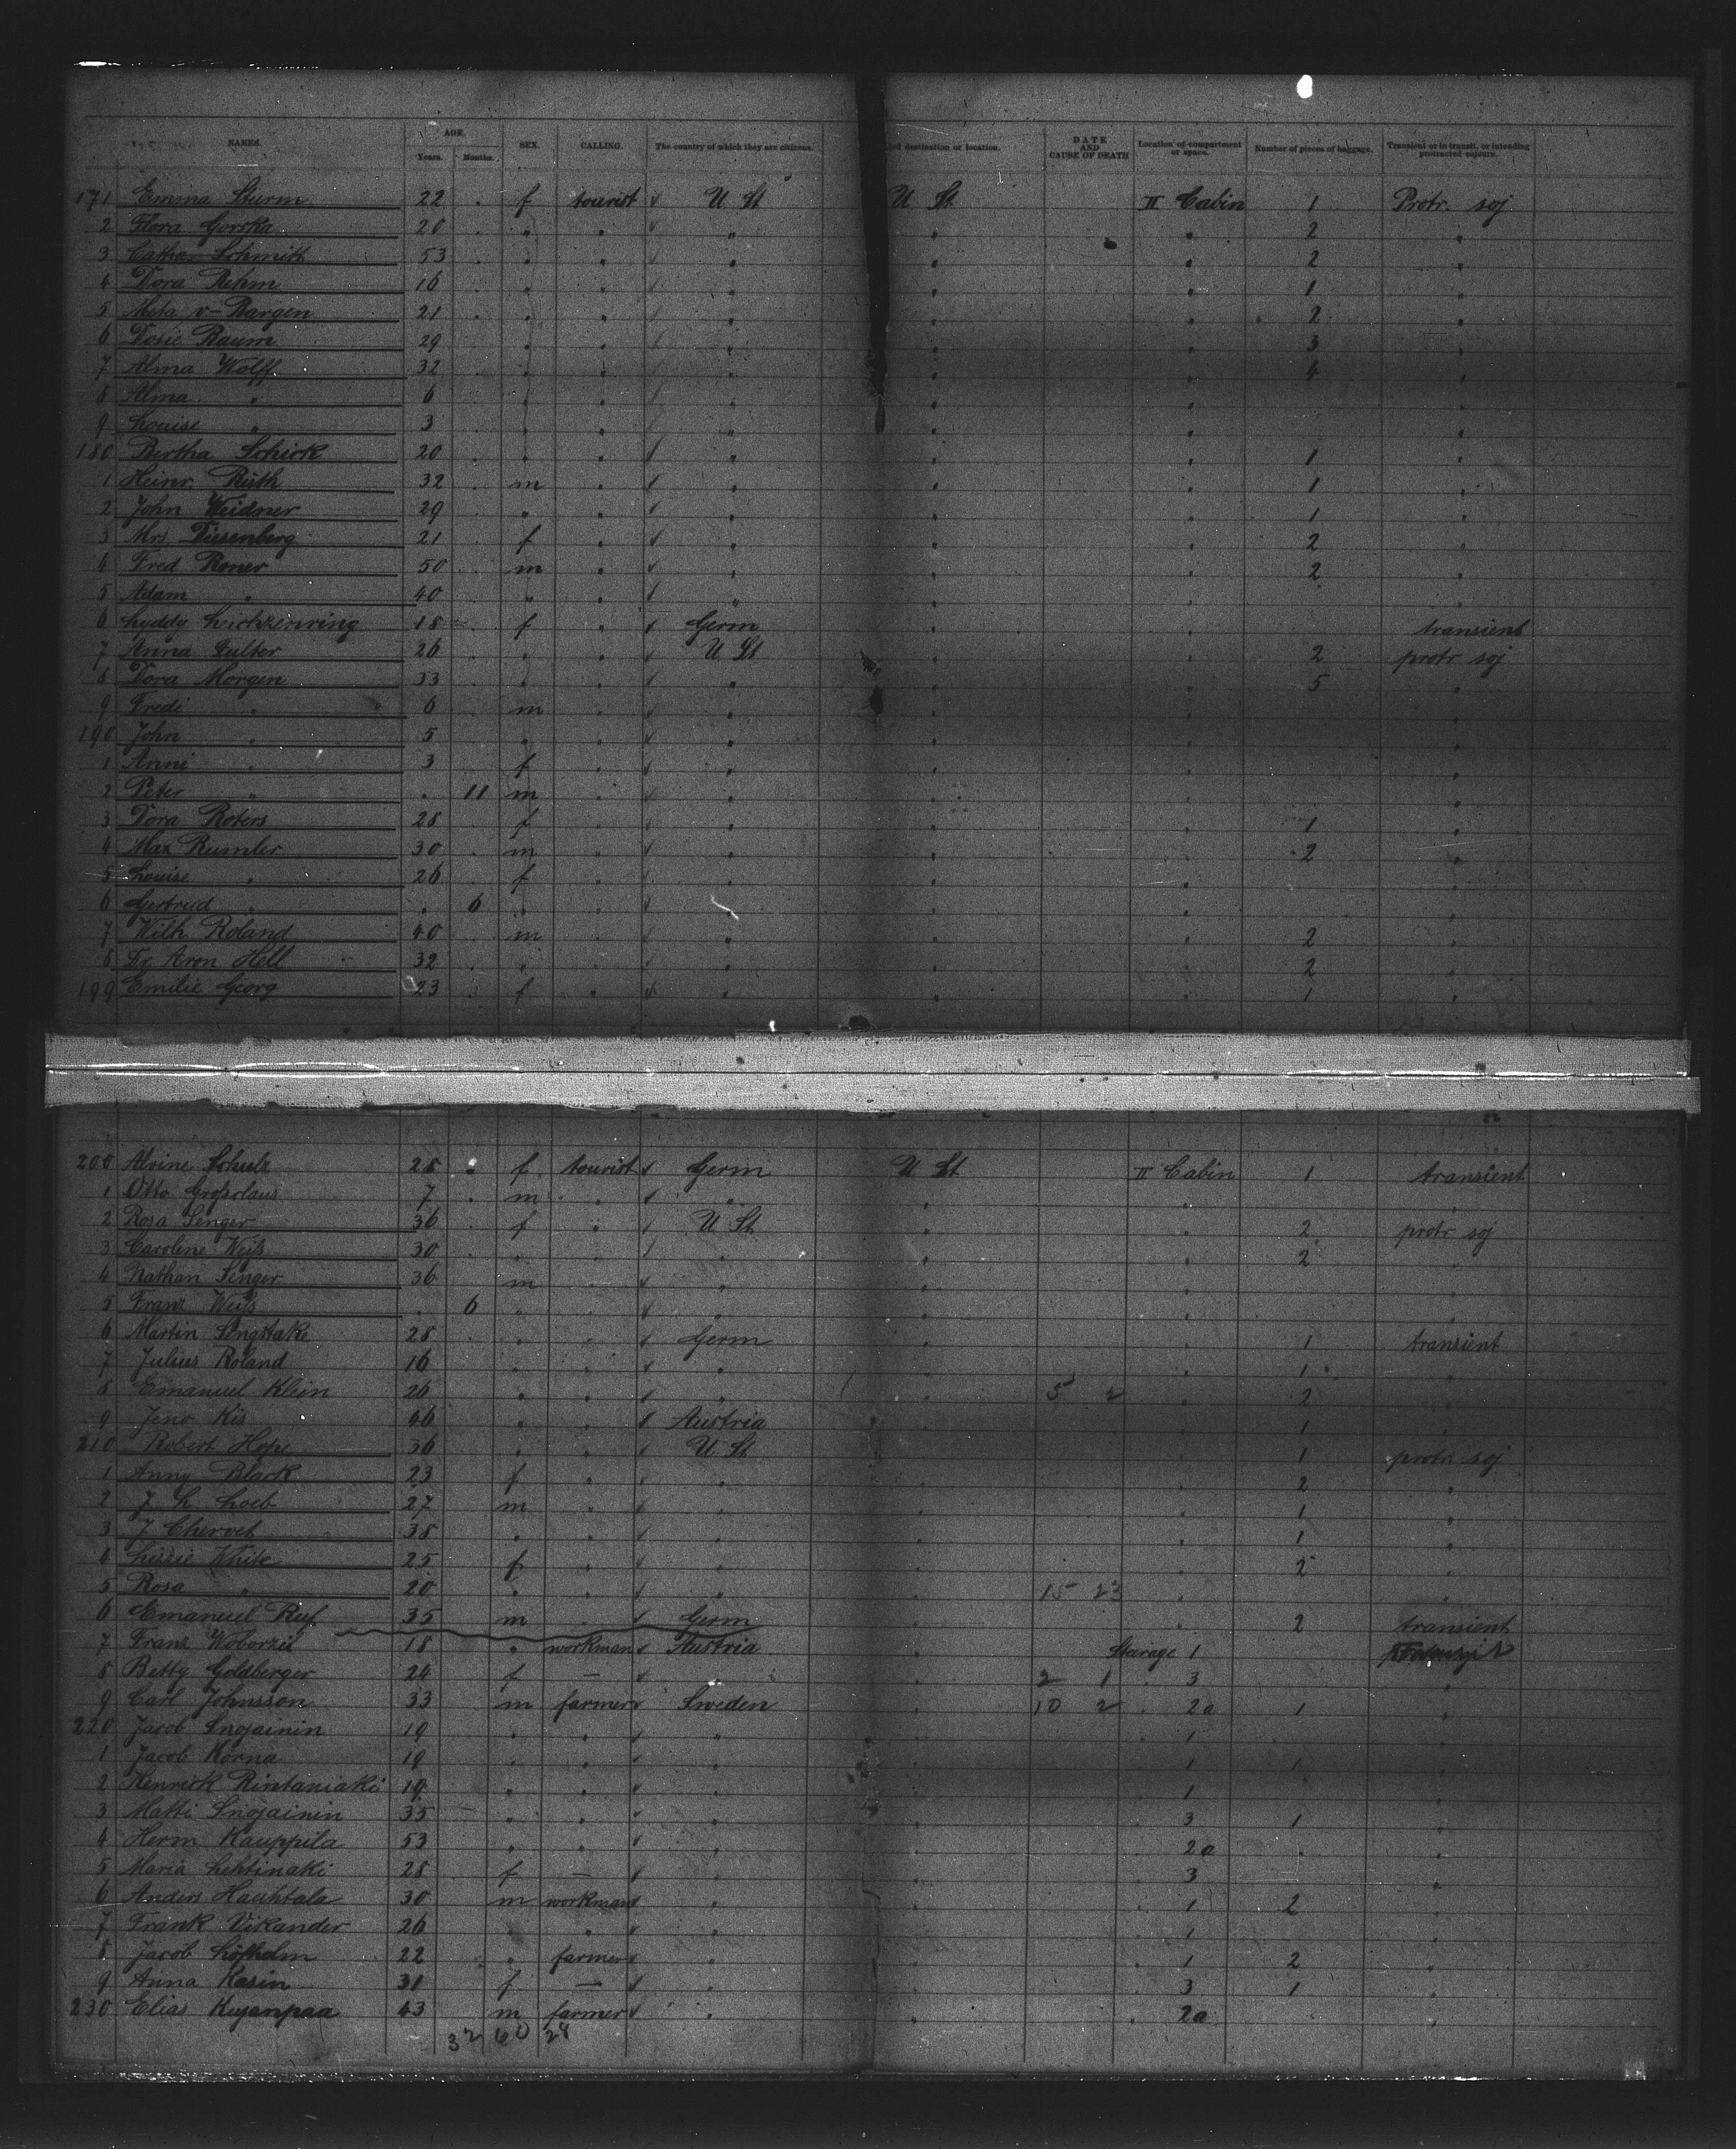 NAMES. AGE. Years. Months. SEX. CALLING. The country of which they are citizens. destination or location. DATE AND CAUSE OF DEATH Location of compartment or space. Number of pieces of baggage. Transient or in transit, or intending protracted sojourn.
171 Emma Sturm 22 . f tourist U St U St II Cabin 1 Protr. soj
2 Flora Gorska 20 . " " " " " 2 "
3 Cath. Schmitt 53 . " " " " " 2 "
4 Dora Rehm 16 . " " " " " 1 "
5 Meta v-Bargen 21 . " " " " " 2 "
6 Dosie Baum 29 . " " " " " 3 "
7 Alma Wolff 32 . " " " " " 4 "
8 Alma " 6 . " " " " " "
9 Louise " 3 . " " " " " "
180 Bertha Schick 20 . " " " " " 1 "
1 Heinr. Rüth 32 . m " " " " 1 "
2 John Weidner 29 . " " " " " 1 "
3 Mrs Diesenberg 21 . f " " " " 2 "
4 Fred Roner 50 . m " " " " 2 "
5 Adam " 40 . " " " " " "
6 Lyddy 18 f " Germ " " transient
7 Anna Fulter 26 . " " U St " " 2 protr soj
8 Dora Morgen 33 . " " " " " 5 "
9 Fredi " 6 . m " " " " "
190 John " 5 . " " " " " "
1 Anni " 3 . f " " " " "
2 Peter " . 11 m " " " " "
3 Dora Roters 28 . f " " " " 1 "
4 Max Rumler 30 . m " " " " 2 "
5 Louise " 26 . f " " " " "
6 Gertrud " . 6 " " " " " "
7 Wilh Roland 40 . m " " " " 2 "
8 Dr Aron Hell 32 . " " " " " 2 "
199 Emilie Georg 23 . f " " " " 1 "
200 Alvine Schulz 28 . f tourist Germ U St II Cabin 1 transient
1 Otto Großclaus 7 . m " " " " "
2 Rosa Senger 36 . f " U St " " 2 protr soj
3 Caroline Weiß 30 . " " " " " 2 "
4 Nathan Senger 36 . m " " " " "
5 Franz Weiß . 6 " " " " " "
6 Martin Sengstake 28 . " " Germ " " 1 transient
7 Julius Roland 16 " " " " " 1 "
8 Emanuel Klein 26 " " " " 5 2 " 2 "
9 Jeno Kis 46 " " Austria " " 1 "
210 Robert Hope 36 " " U St " " 1 protr soj
1 Anny Black 23 f " " " " 2 "
2 J. L. Loeb 27 m " " " " 1 "
3 J Chervet 38 " " " " " 1 "
4 Lissie White 25 f " " " " 2 "
5 Rosa " 20 " " " " 15 23 " "
6 Emanuel Ruf 35 m " Germ " " 2 transient
7 Franz Woborzil 18 " workman Austria " Steerage 1
8 Betty Goldberger 24 f — " " 2 1 3 "
9 Carl Johnsson 33 m farmer Sweden " 10 2 2a 1 "
220 Jacob Snojainin 19 " " " " 1 "
1 Jacob Korna 19 " " " " 1 1 "
2 Henrick Rintaniaki 19 " " " " 1 "
3 Matti Snojainin 35 " " " " 3 1 "
4 Herm Kauppila 53 " " " " 2a "
5 Maria Lehtinaki 28 f — " " 3 "
6 Anders Hauhtala 30 m workman " " 1 2 "
7 Frank Vikander 26 " " " " 1 "
8 Jacob Löfholm 22 " farmer " " 1 2 "
9 Anna Kasin 31 f — " " 3 1 "
230 Elias Kujanpaa 43 m farmer " " 2a "
32 60 28